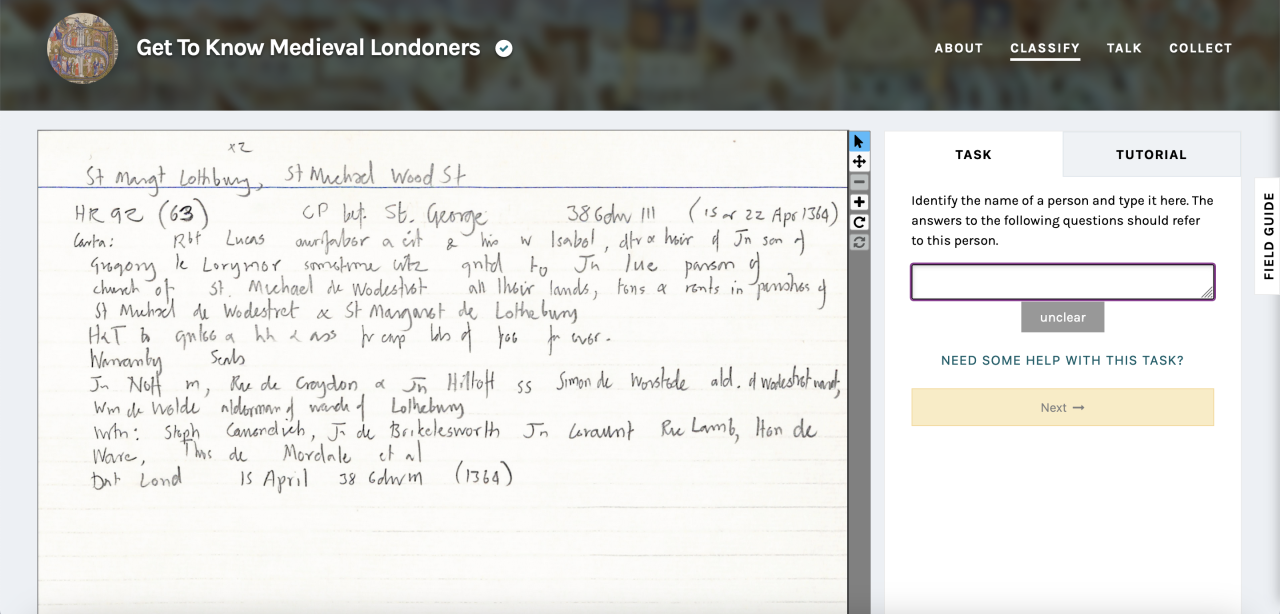 Get To Know Medieval Londoners
ABOUT CLASSIFY TALK COLLECT
x2
St Margt Lothbury, St Michael Wood St
HR 92 (63) CP bef. St. George 38 Edw III (15 or 22 Apr 1364)
Carta: Rbt Lucas aurifaber a cit & his w Isabel, dtr & heir of Jn son of
Gregory le Lorymer sometime ctz gntd to Jn lue parson of
church of St. Michael de Wodestret all their lands, tens & rents in parishes of
St Michael de Wodestret & St Margaret de Lothebury
H&T to gntee & hh & ass fr cap lds of fee for ever.
Warranty Seals
Jn Nott m, Ric de Croydon & Jn Hiltoft ss Simon de Worstede ald. of Wodestret ward,
Wm de Welde alderman of warde of Lothebury
Wtn: Steph Canendich, Jn de Brikelesworth Jn Ric Lamb, Hen de
Ware, Thos de Mordale et al
Dat Lond 15 April 38 Edw III (1364)
TASK
TUTORIAL
Identify the name of a person and type it here. The
answers to the following questions should refer
to this person.
unclear
NEED SOME HELP WITH THIS TASK?
Next →
FIELD GUIDE